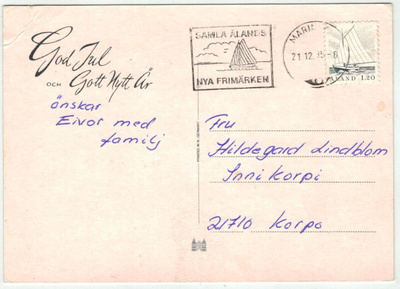 God Jul
OCH Gott Nytt År
önskar
Eivor med
familj
SAMLA ÅLANDS
NYA FRIMÄRKEN
21.12.85-8
ÅLAND 1.20
Fru
Hildegard Lindblom
Innikorpi
21710 Korpo